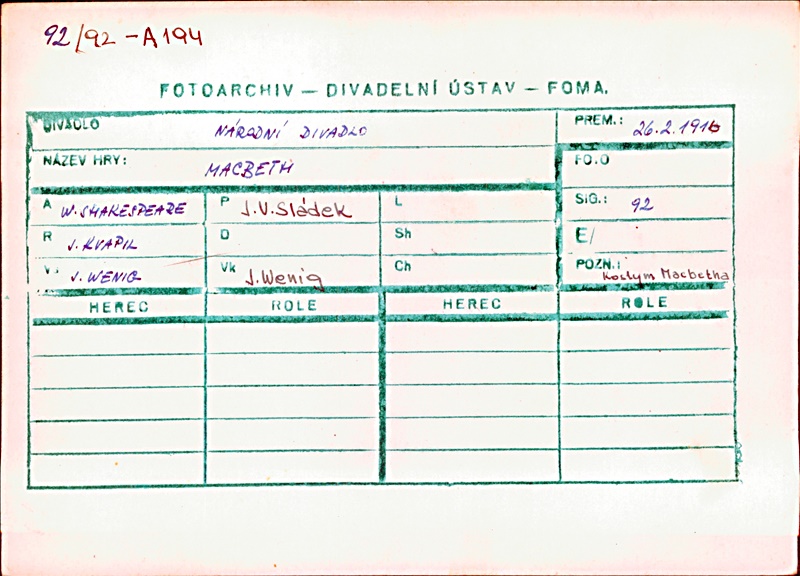 92/92 - A194
FOTOARCHIV — DIVADELNÍ ÚSTAV — FOMA.
DIVADLO NÁRODNÍ DIVADLO PREM.: 26.2.1916
NÁZEV HRY: MACBETH FO.O
A W. SHAKESPEARE P J.V. Sládek L SIG.: 92
R J. KVAPIL D Sh E/
V. J. WENIG Vk J. Wenig Ch POZN.: Kostym Macbetha
HEREC ROLE HEREC ROLE